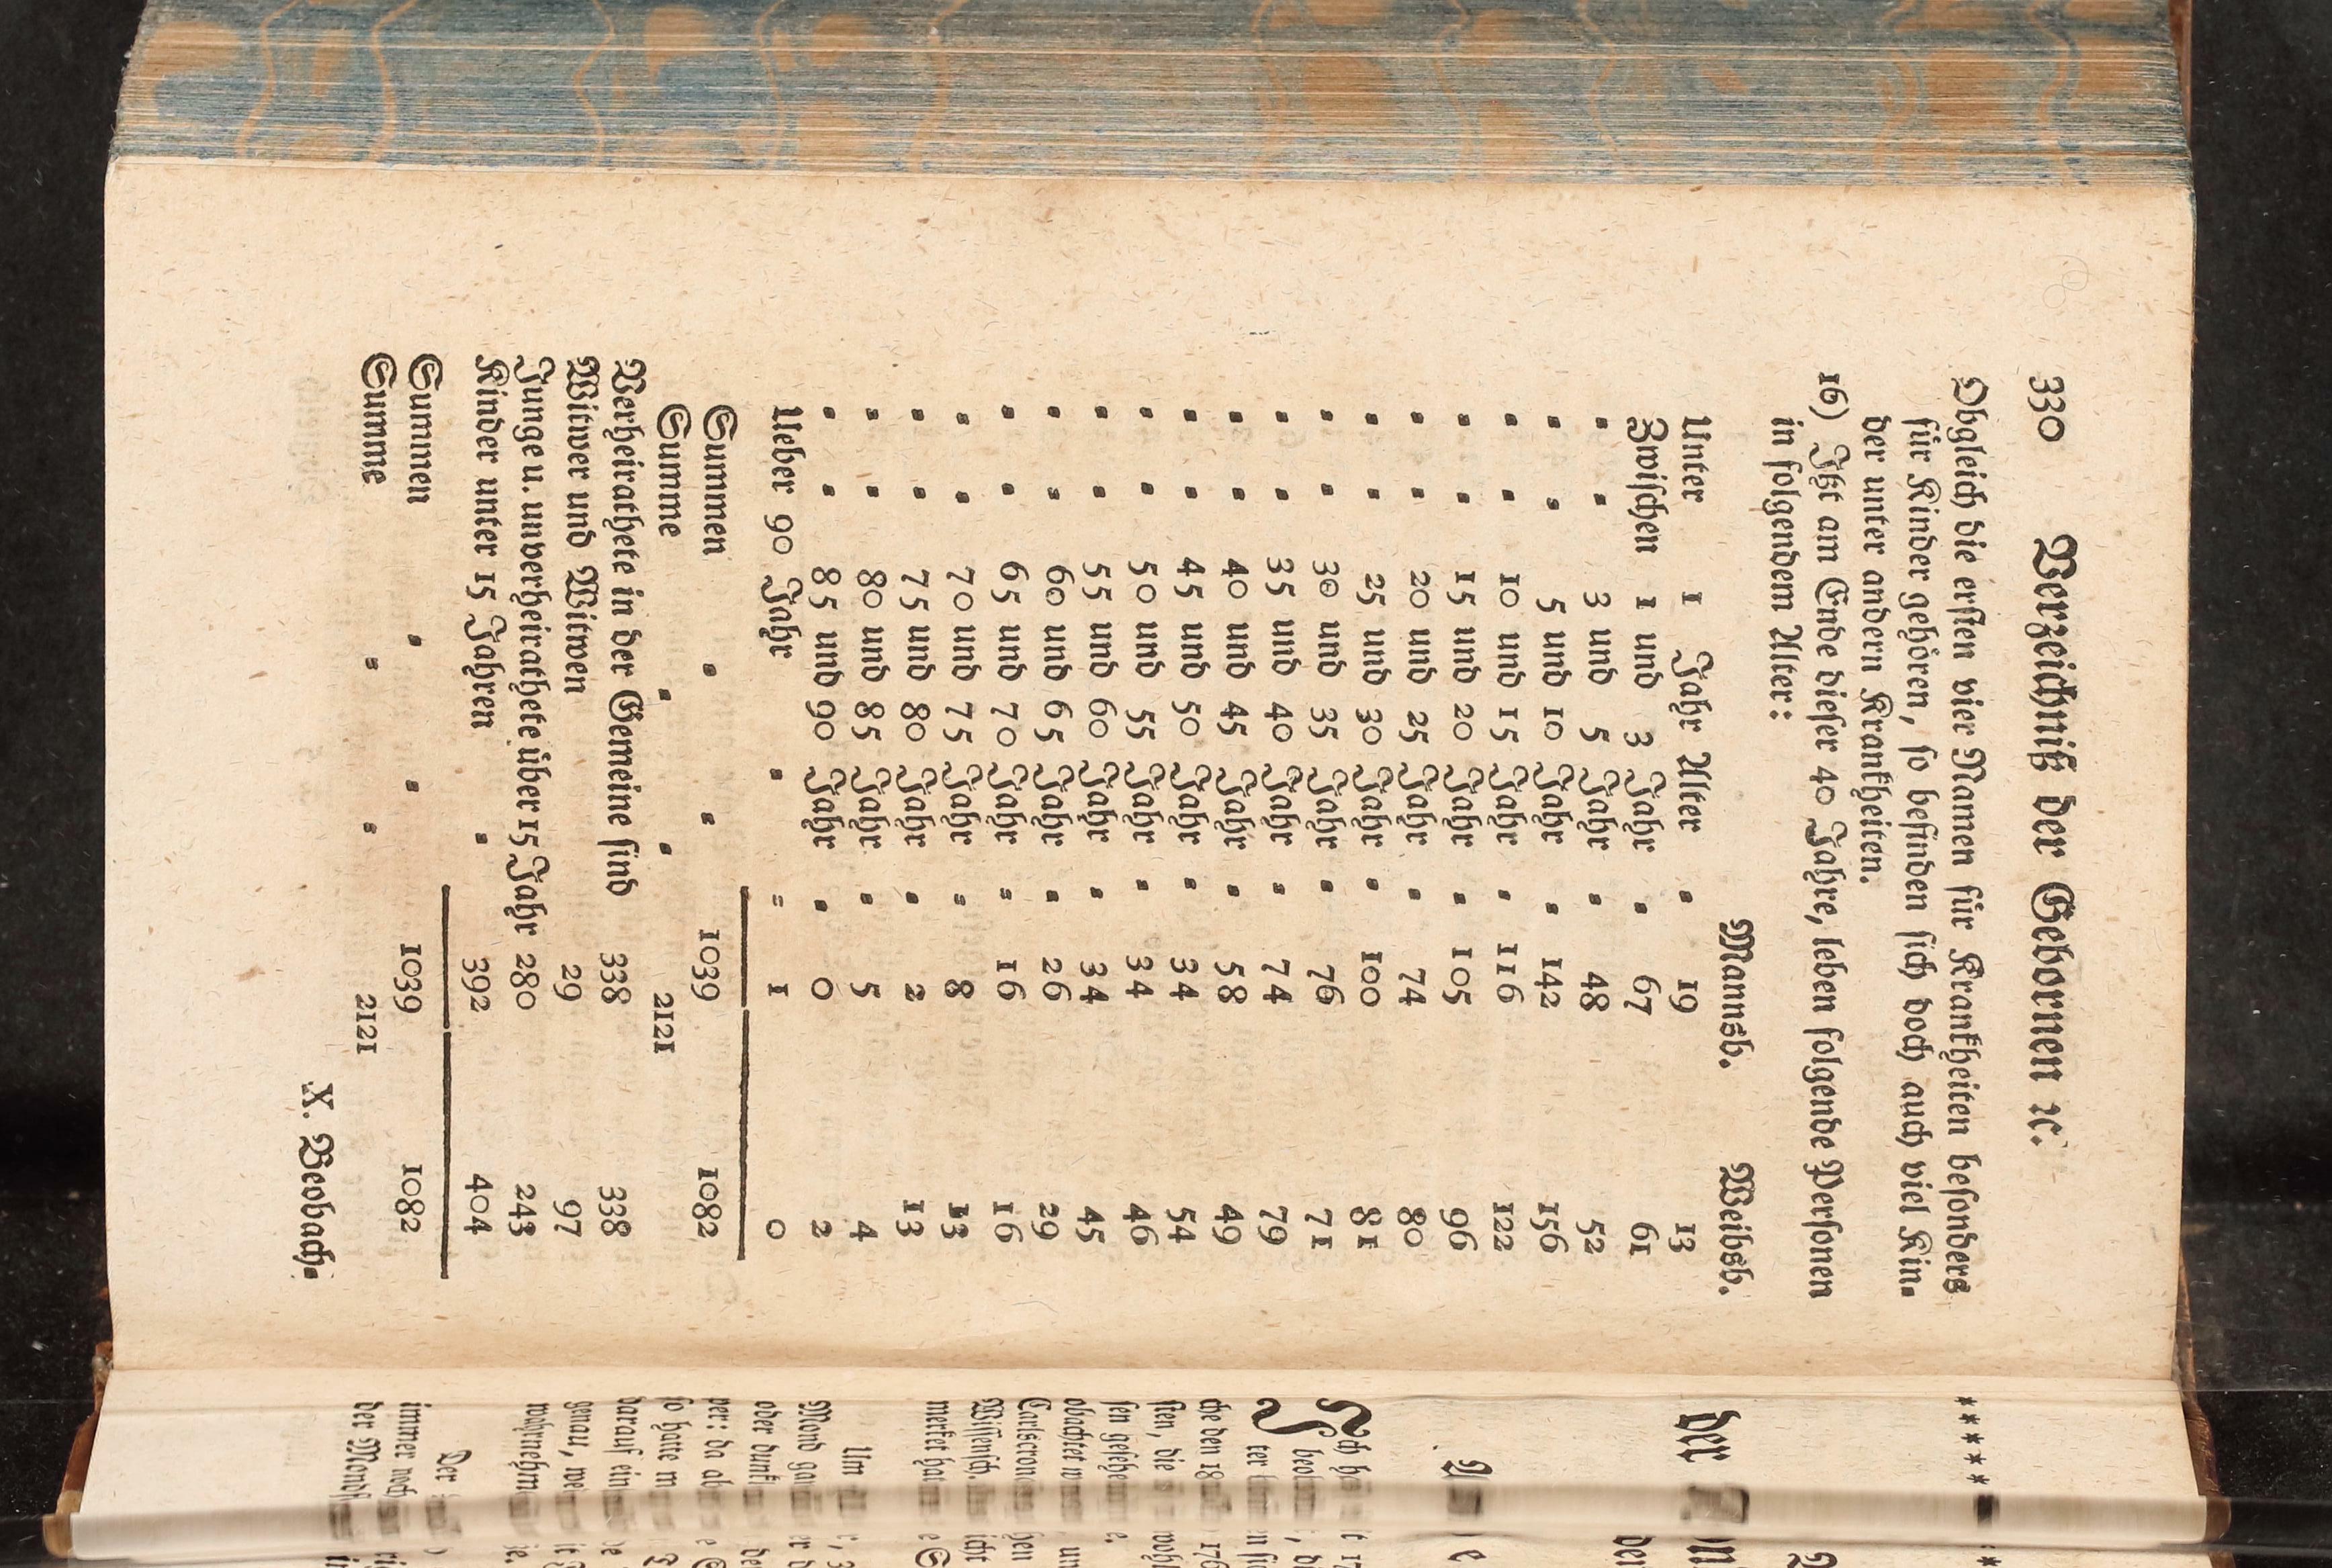 330 Verzeichniß der Gebornen ꝛc.
Obgleich die ersten vier Namen für Krankheiten besonders
für Kinder gehören, so befinden sich doch auch viel Kin-
der unter andern Krankheiten.
16) Itzt am Ende dieser 40 Jahre, leben folgende Personen
in folgendem Alter:
Mannsb. Weibsb.
Unter 1 Jahr Alter - 19 13
Zwischen 1 und 3 Jahr - 67 61
- - 3 und 5 Jahr - 48 52
- - 5 und 10 Jahr - 142 156
- - 10 und 15 Jahr - 116 122
- - 15 und 20 Jahr - 105 96
- - 20 und 25 Jahr - 74 80
- - 25 und 30 Jahr - 100 81
- - 30 und 35 Jahr - 76 71
- - 35 und 40 Jahr - 74 79
- - 40 und 45 Jahr - 58 49
- - 45 und 50 Jahr - 34 54
- - 50 und 55 Jahr - 34 46
- - 55 und 60 Jahr - 34 45
- - 60 und 65 Jahr - 26 29
- - 65 und 70 Jahr - 16 16
- - 70 und 75 Jahr - 8 13
- - 75 und 80 Jahr - 2 13
- - 80 und 85 Jahr - 5 4
- - 85 und 90 Jahr - 0 2
Ueber 90 Jahr - - 1 0
Summen - - 1039 1082
Summe - - 2121
Verheirathete in der Gemeine sind 338 338
Witwer und Witwen 29 97
Junge u. unverheirathete über 15 Jahr 280 243
Kinder unter 15 Jahren - 392 404
Summen - - 1039 1082
Summe - - 2121
X. Beobach-
*****
der
Ich h
beo
ter
che den 18
sten, die
sen gesehe
obachtet
Carlscron
Wissensch.
merket ha
Um
Mond ga
oder dunk
per: da ab
so hatte m
darauf ein
genau, we
wahrnehm
Der
immer noch
der Monds